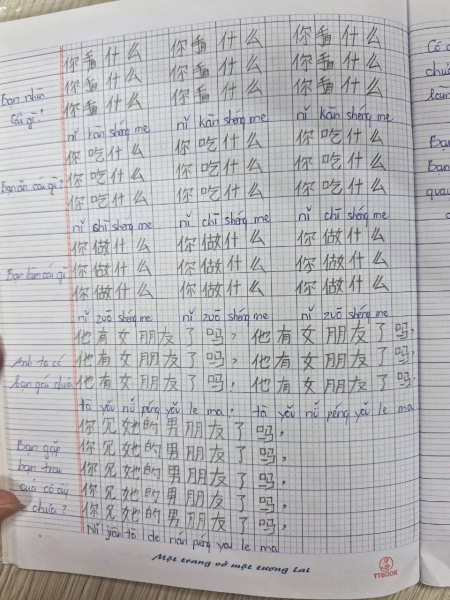 你看什么 你看什么 你看什么
你看什么 你看什么 你看什么
Bạn nhìn 你看什么 你看什么 你看什么
cái gì?
nǐ kān shéng me nǐ kān shéng me nǐ kān shéng me
你吃什么 你吃什么 你吃什么
你吃什么 你吃什么 你吃什么
Bạn ăn cái gì? 你吃什么 你吃什么 你吃什么
nǐ chī shéng me nǐ chī shéng me nǐ chī shéng me
你做什么 你做什么 你做什么
你做什么 你做什么 你做什么
Bạn làm cái gì 你做什么 你做什么 你做什么
nǐ zuō shéng me nǐ zuō shéng me nǐ zuō shéng me
他有女朋友了吗, 他有女朋友了吗,
Anh ta có 他有女朋友了吗, 他有女朋友了吗,
bạn gái chưa 他有女朋友了吗, 他有女朋友了吗,
tā yǒu nǚ péng yǒu le ma, tā yǒu nǚ péng yǒu le ma
你见她的男朋友了吗,
Bạn gặp 你见她的男朋友了吗,
bạn trai 你见她的男朋友了吗,
của cô ấy 你见她的男朋友了吗,
chưa? 你见她的男朋友了吗,
Nǐ jiàn tā de nán péng yǒu le ma
Một trang vở một tương lai
TTBOOK